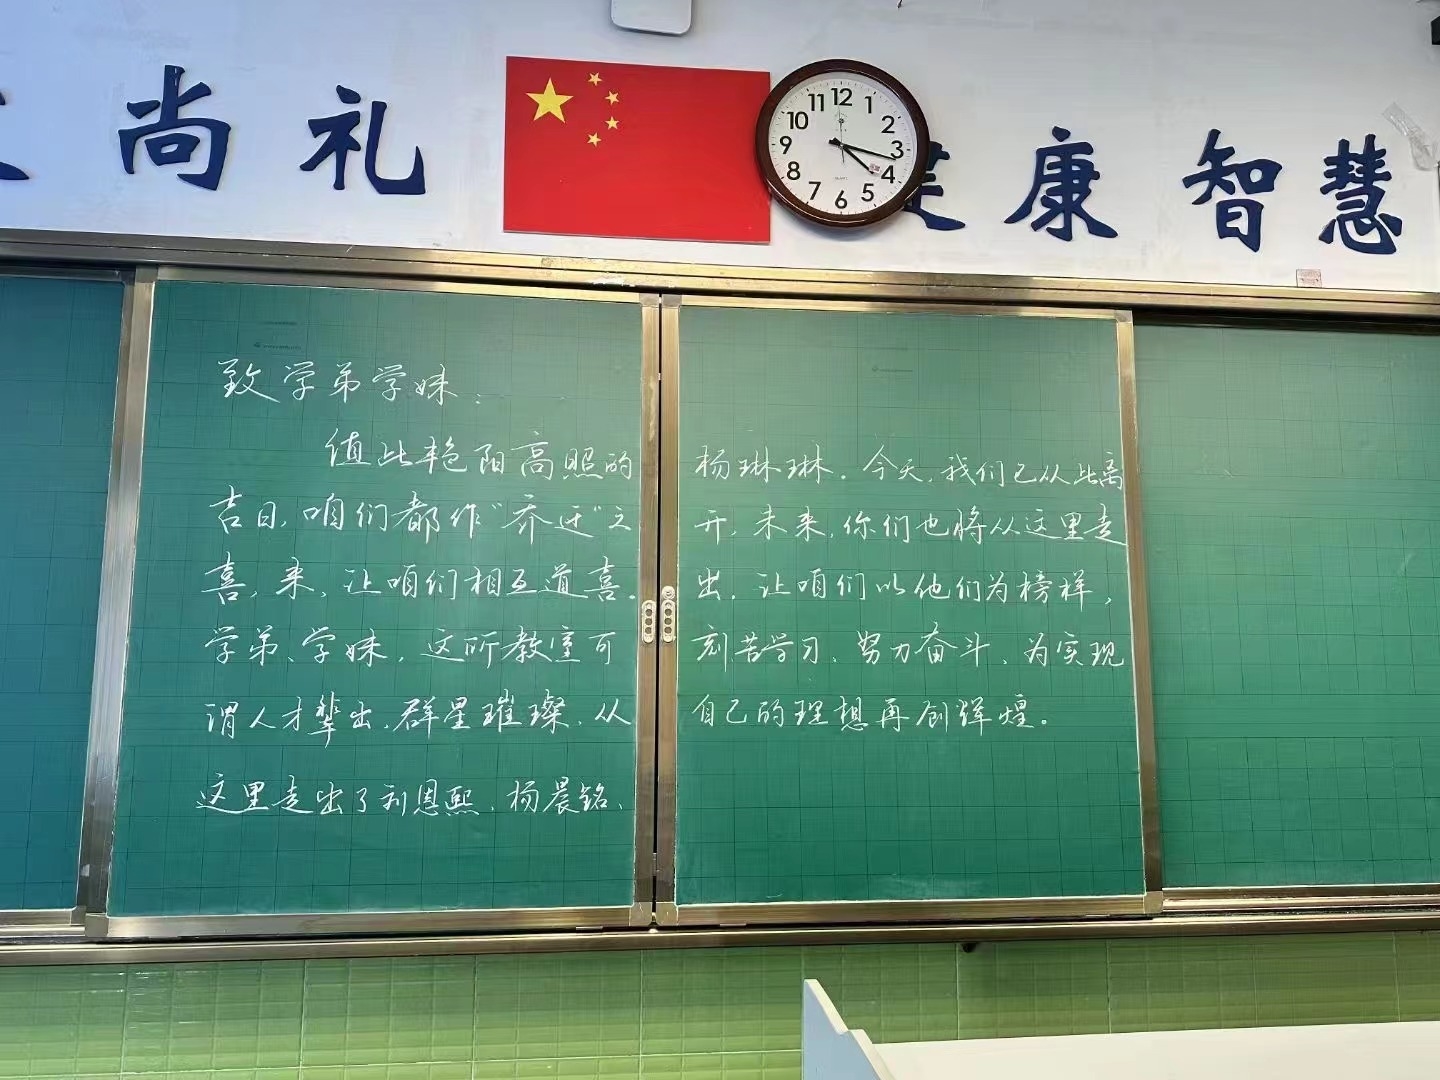 尚礼
健康智慧
12
1
2
3
4
5
6
7
8
9
10
11
致学弟学妹：
值此艳阳高照的
吉日，咱们都作“乔迁”之
喜，来，让咱们相互道喜。
学弟、学妹，这所教室可
谓人才辈出、群星璀璨，从
这里走出了利恩熙、杨晨铭、
杨琳琳。今天，我们已从此离
开，未来，你们也将从这里走
出。让咱们以他们为榜样，
刻苦学习、努力奋斗、为实现
自己的理想再创辉煌。